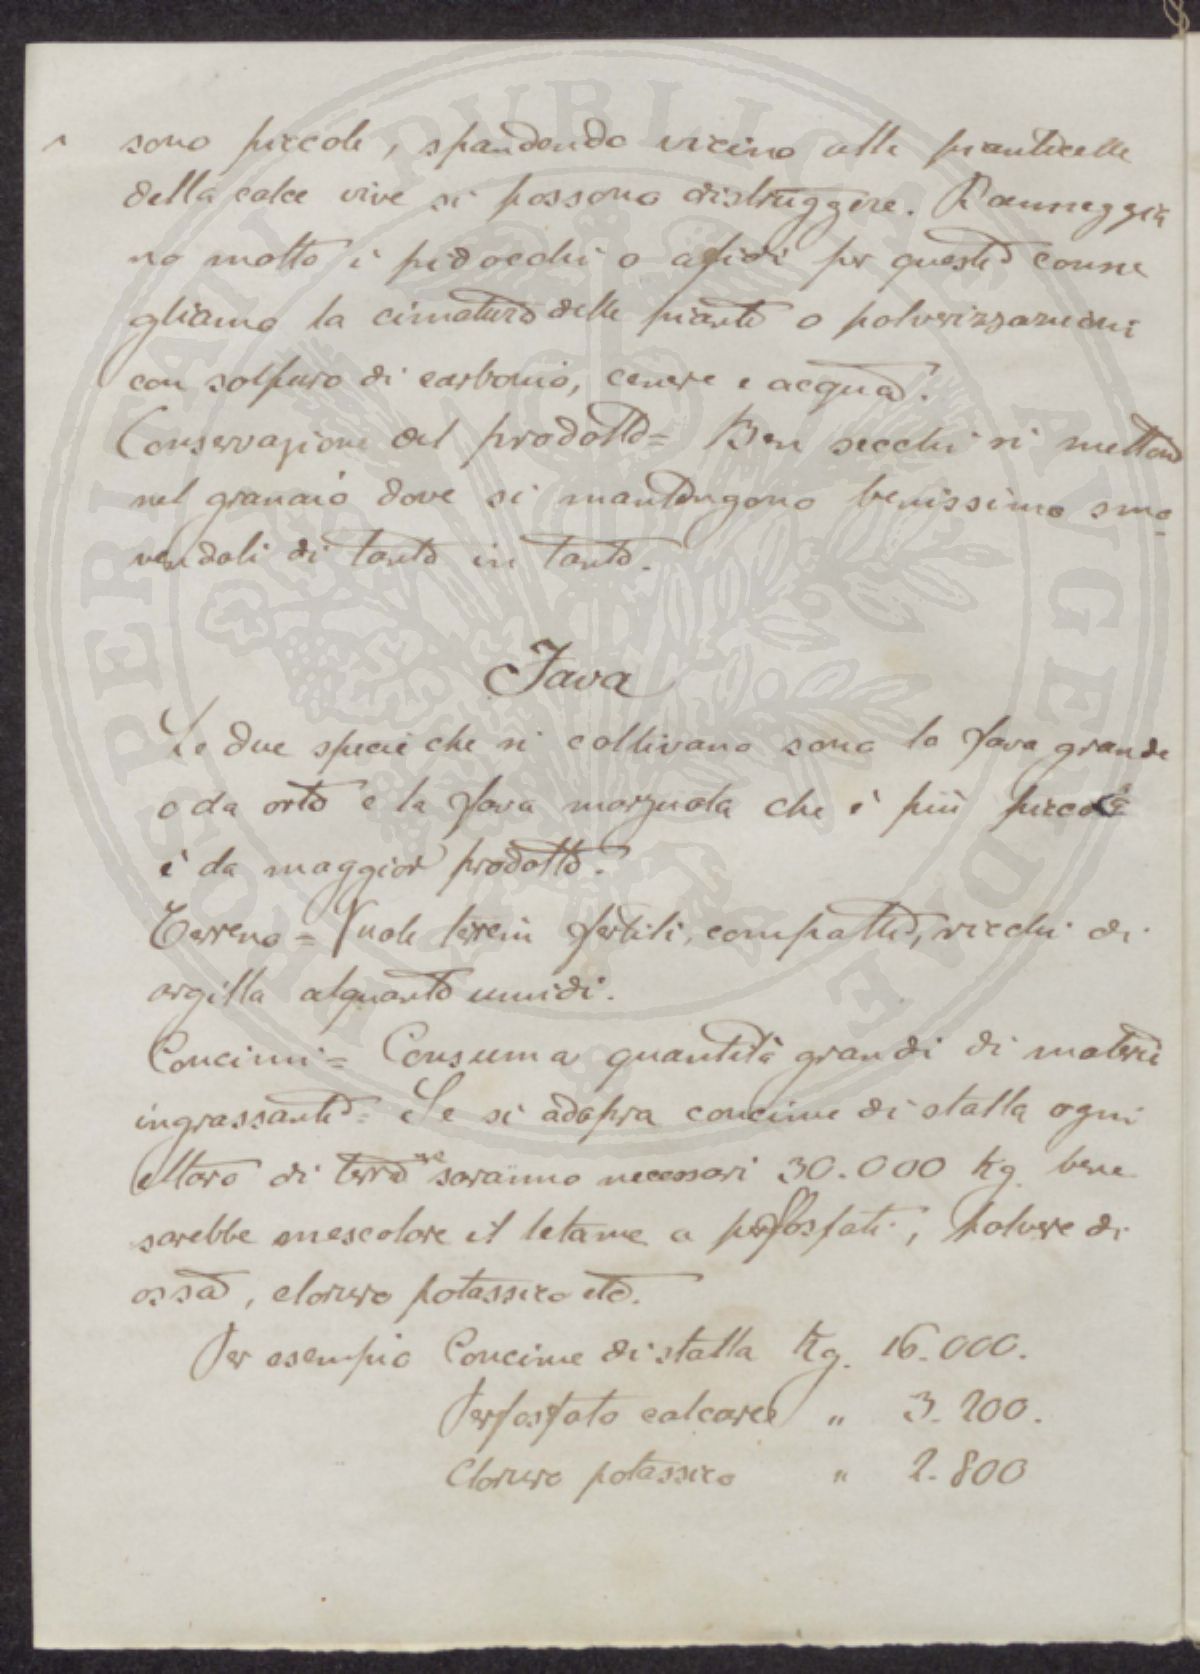 sono piccole, spandendo vicino alle pianticelle
della calce vive si possono distruggere. Danneggia
no molto i pidocchi o afidi per queste consi
gliamo la cimatura delle piante o polverizzazioni
con solfuro di carbonio, cenere e acqua.
Conservazione del prodotto = Ben secchi si mettono
nel granaio dove si mantengono benissimo smo
vendoli di tanto in tanto.
Fava
Le due specie che si coltivano sono la fava grande
o da orto e la fava marzuola che è più piccola
è da maggior prodotto.
Terreno = Vuole terreni fertili, compatte, ricchi di
argilla alquanto umidi.
Concimi = Consuma quantità grandi di materie
ingrassante = Se si adopra concime di stalla ogni
ettaro di terra ne saranno necessari 30.000 Kg. bene
sarebbe mescolare il letame a perfosfati, polvere di
ossa, cloruro potassico etc.
Per esempio Concime di stalla Kg. 16.000.
Perfosfato calcareo " 3.200.
Cloruro potassico " 2.800
PROSPERITATI PUBLICAE AVGENDAE